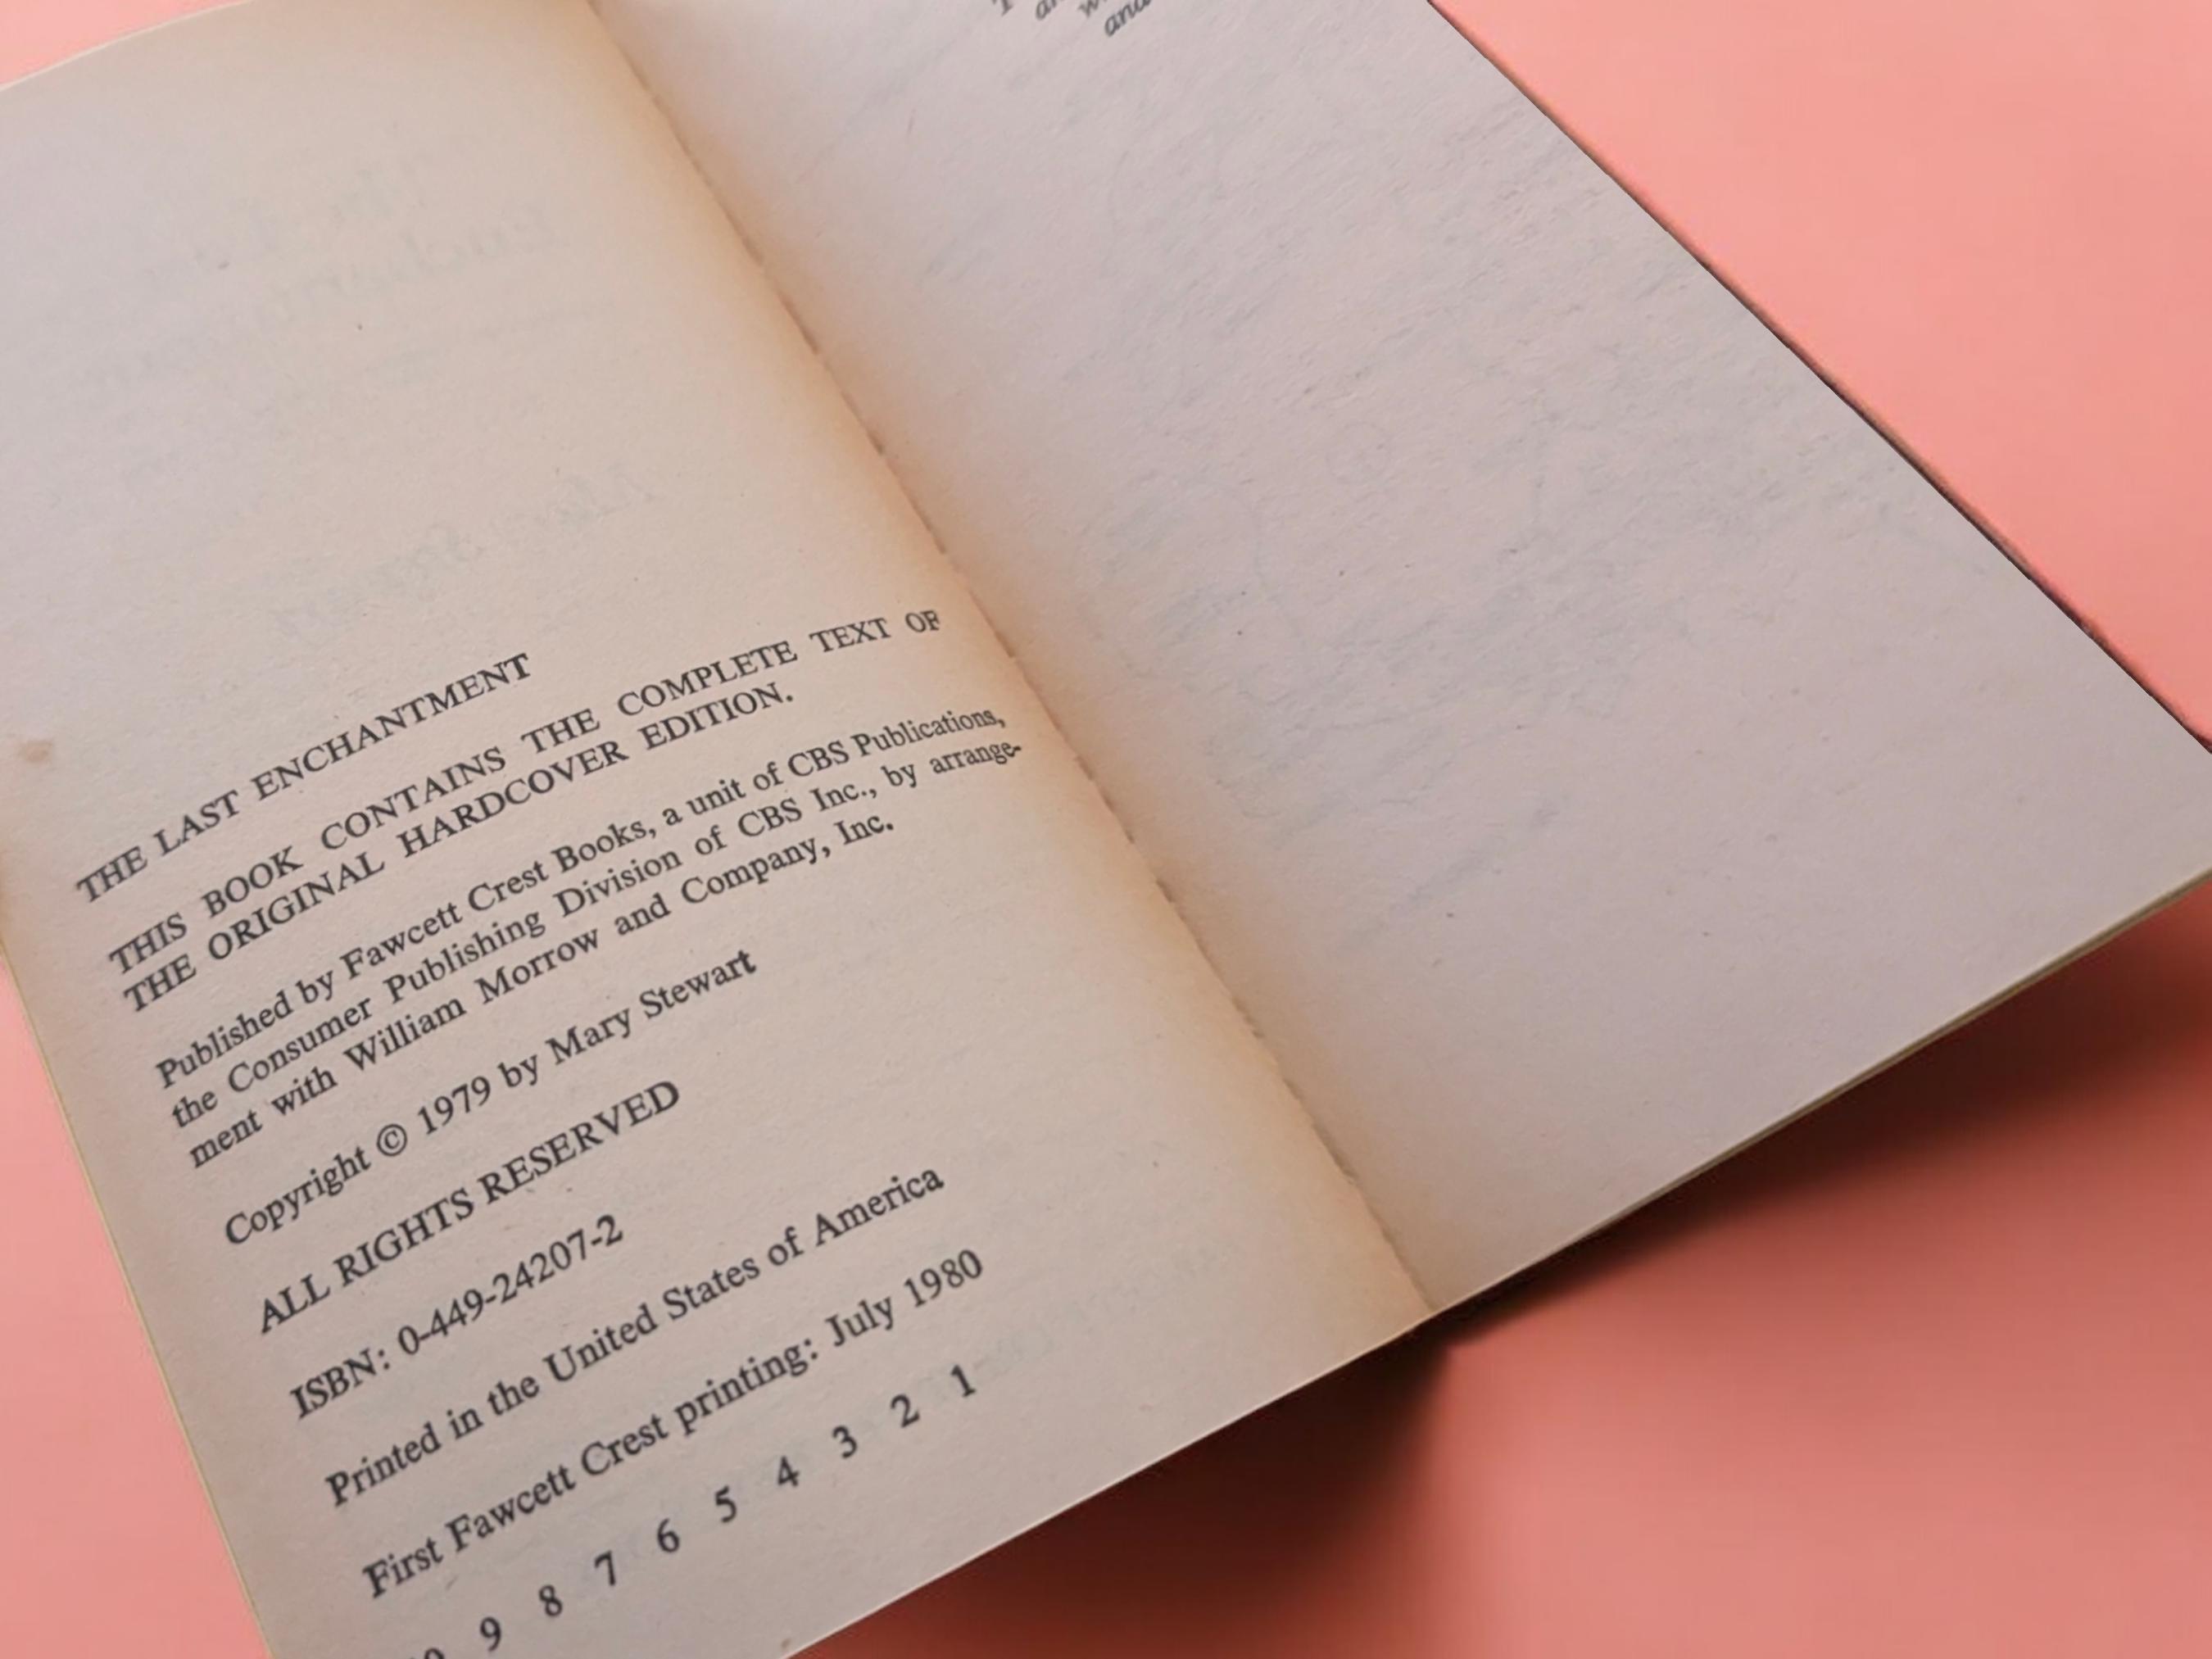 THE LAST ENCHANTMENT
THIS BOOK CONTAINS THE COMPLETE TEXT OF
THE ORIGINAL HARDCOVER EDITION.
Published by Fawcett Crest Books, a unit of CBS Publications,
the Consumer Publishing Division of CBS Inc., by arrange-
ment with William Morrow and Company, Inc.
Copyright © 1979 by Mary Stewart
ALL RIGHTS RESERVED
ISBN: 0-449-24207-2
Printed in the United States of America
First Fawcett Crest printing: July 1980
9 8 7 6 5 4 3 2 1